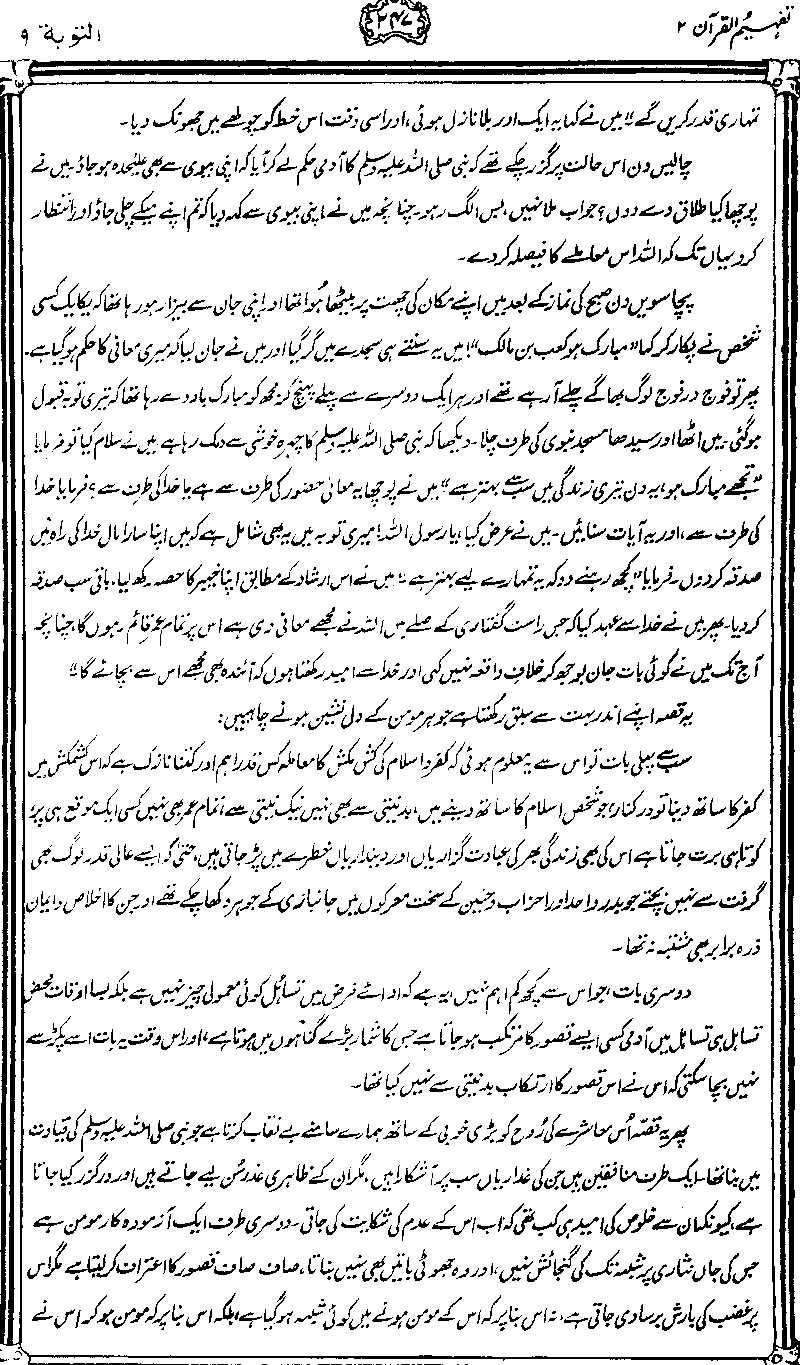 تفہیم القرآن ۲
۲۴۷
التوبة ۹
تمہاری قدر کریں گے"۔ میں نے کہا یہ ایک اور بلا نازل ہوئی، اور اسی وقت اس خط کو چولھے میں جھونک دیا۔
چالیس دن اس حالت پر گزر چکے تھے کہ نبی صلی اللہ علیہ وسلم کا آدمی حکم لے کر آیا کہ اپنی بیوی سے بھی علیٰحدہ ہو جاؤ۔ میں نے
پوچھا کیا طلاق دے دوں؟ جواب ملا نہیں، بس الگ رہو۔ چنانچہ میں نے اپنی بیوی سے کہہ دیا کہ تم اپنے میکے چلی جاؤ اور انتظار
کرو یہاں تک کہ اللہ اس معاملے کا فیصلہ کر دے۔
پچاسویں دن صبح کی نماز کے بعد میں اپنے مکان کی چھت پر بیٹھا ہُوا تھا اور اپنی جان سے بیزار ہو رہا تھا کہ یکایک کسی
شخص نے پکار کر کہا "مبارک ہو کعب بن مالک"! میں یہ سنتے ہی سجدے میں گر گیا اور میں نے جان لیا کہ میری معافی کا حکم ہو گیا ہے۔
پھر تو فوج در فوج لوگ بھاگے چلے آ رہے تھے اور ہر ایک دوسرے سے پہلے پہنچ کر مجھ کو مبارک باد دے رہا تھا کہ تیری توبہ قبول
ہو گئی۔ میں اٹھا اور سیدھا مسجد نبوی کی طرف چلا۔ دیکھا کہ نبی صلی اللہ علیہ وسلم کا چہرہ خوشی سے دمک رہا ہے۔ میں نے سلام کیا تو فرمایا
"تجھے مبارک ہو، یہ دن تیری زندگی میں سب سے بہتر ہے"۔ میں نے پوچھا یہ معافی حضور کی طرف سے ہے یا خدا کی طرف سے؟ فرمایا خدا
کی طرف سے، اور یہ آیات سنائیں۔ میں نے عرض کیا، یا رسول اللہ! میری توبہ میں یہ بھی شامل ہے کہ میں اپنا سارا مال خدا کی راہ میں
صدقہ کر دوں۔ فرمایا "کچھ رہنے دو کہ یہ تمہارے لیے بہتر ہے"۔ میں نے اس ارشاد کے مطابق اپنا خیبر کا حصہ رکھ لیا، باقی سب صدقہ
کر دیا۔ پھر میں نے خدا سے عہد کیا کہ جس راست گفتاری کے صلے میں اللہ نے مجھے معافی دی ہے اس پر تمام عمر قائم رہوں گا، چنانچہ
آج تک میں نے کوئی بات جان بوجھ کر خلافِ واقعہ نہیں کہی اور خدا سے امید رکھتا ہوں کہ آئندہ بھی مجھے اس سے بچائے گا"۔
یہ قصہ اپنے اندر بہت سے سبق رکھتا ہے جو ہر مومن کے دل نشین ہونے چاہییں:
سب سے پہلی بات تو اس سے یہ معلوم ہوئی کہ کفر و اسلام کی کش مکش کا معاملہ کس قدر اہم اور کتنا نازک ہے کہ اس کشمکش میں
کفر کا ساتھ دینا تو درکنار، جو شخص اسلام کا ساتھ دینے میں، بد نیتی سے بھی نہیں نیک نیتی سے، تمام عمر بھی نہیں کسی ایک موقع ہی پر،
کوتاہی برت جاتا ہے اس کی بھی زندگی بھر کی عبادت گزاریاں اور دینداریاں خطرے میں پڑ جاتی ہیں، حتیٰ کہ ایسے عالی قدر لوگ بھی
گرفت سے نہیں بچتے جو بدر و احد اور احزاب و حنین کے سخت معرکوں میں جانبازی کے جوہر دکھا چکے تھے اور جن کا اخلاص و ایمان
ذرہ برابر بھی مشتبہ نہ تھا۔
دوسری بات، جو اس سے کچھ کم اہم نہیں، یہ ہے کہ ادائے فرض میں تساہل کوئی معمولی چیز نہیں ہے بلکہ بسا اوقات محض
تساہل ہی تساہل میں آدمی کسی ایسے قصور کا مرتکب ہو جاتا ہے جس کا شمار بڑے گناہوں میں ہوتا ہے، اور اس وقت یہ بات اسے پکڑ سے
نہیں بچا سکتی کہ اس نے اس قصور کا ارتکاب بد نیتی سے نہیں کیا تھا۔
پھر یہ قصہ اُس معاشرے کی رُوح کو بڑی خوبی کے ساتھ ہمارے سامنے بے نقاب کرتا ہے جو نبی صلی اللہ علیہ وسلم کی قیادت
میں بنا تھا۔ ایک طرف منافقین ہیں جن کی غداریاں سب پر آشکارا ہیں، مگر ان کے ظاہری عذر سُن لیے جاتے ہیں اور درگزر کیا جاتا
ہے، کیونکہ ان سے خلوص کی امید ہی کب تھی کہ اب اس کے عدم کی شکایت کی جاتی۔ دوسری طرف ایک آزمودہ کار مومن ہے
جس کی جاں نثاری پر شبہ تک کی گنجائش نہیں، اور وہ جھوٹی باتیں بھی نہیں بناتا، صاف صاف قصور کا اعتراف کر لیتا ہے، مگر اس
پر غضب کی بارش برسا دی جاتی ہے، نہ اس بنا پر کہ اس کے مومن ہونے میں کوئی شبہ ہو گیا ہے، بلکہ اس بنا پر کہ مومن ہو کر اس نے